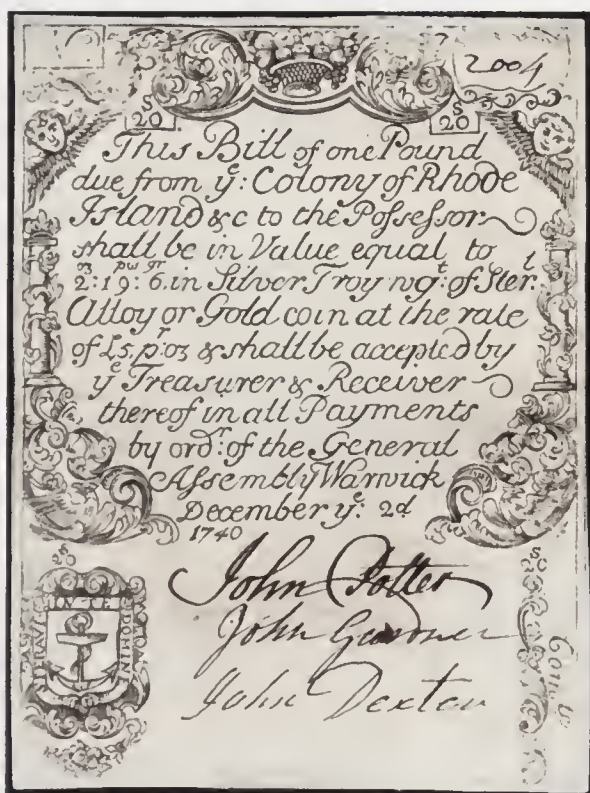 2004
S
20
S
20
This Bill of one Pound
due from yͤ: Colony of Rhode
Island & c to the Poſseſsor
shall be in Value equal to
oz pw gr
2:19:6. in Silver Troy wgᵗ: of Sterˡ
Alloy or Gold coin at the rate
of £5. pʳ: oz & shall be accepted by
yͤ Treasurer & Receiver
thereof in all Payments
by ordʳ: of the General
Assembly Warwick
December yͤ: 2d
1740
John Potter
John Gardner
John Dexter
IN TE
DOMINE